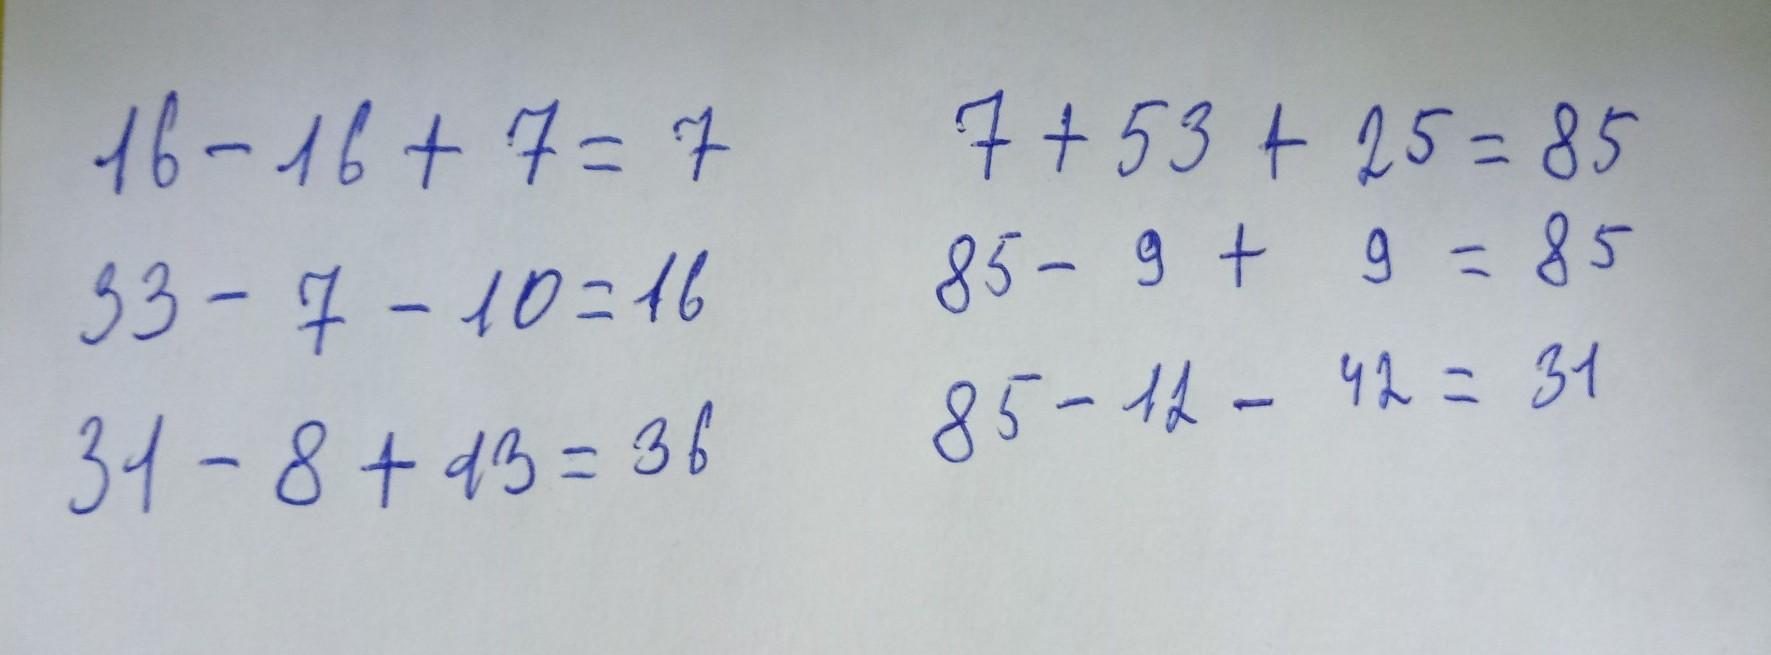 16 - 16 + 7 = 7
33 - 7 - 10 = 16
31 - 8 + 13 = 36
7 + 53 + 25 = 85
85 - 9 + 9 = 85
85 - 12 - 42 = 31